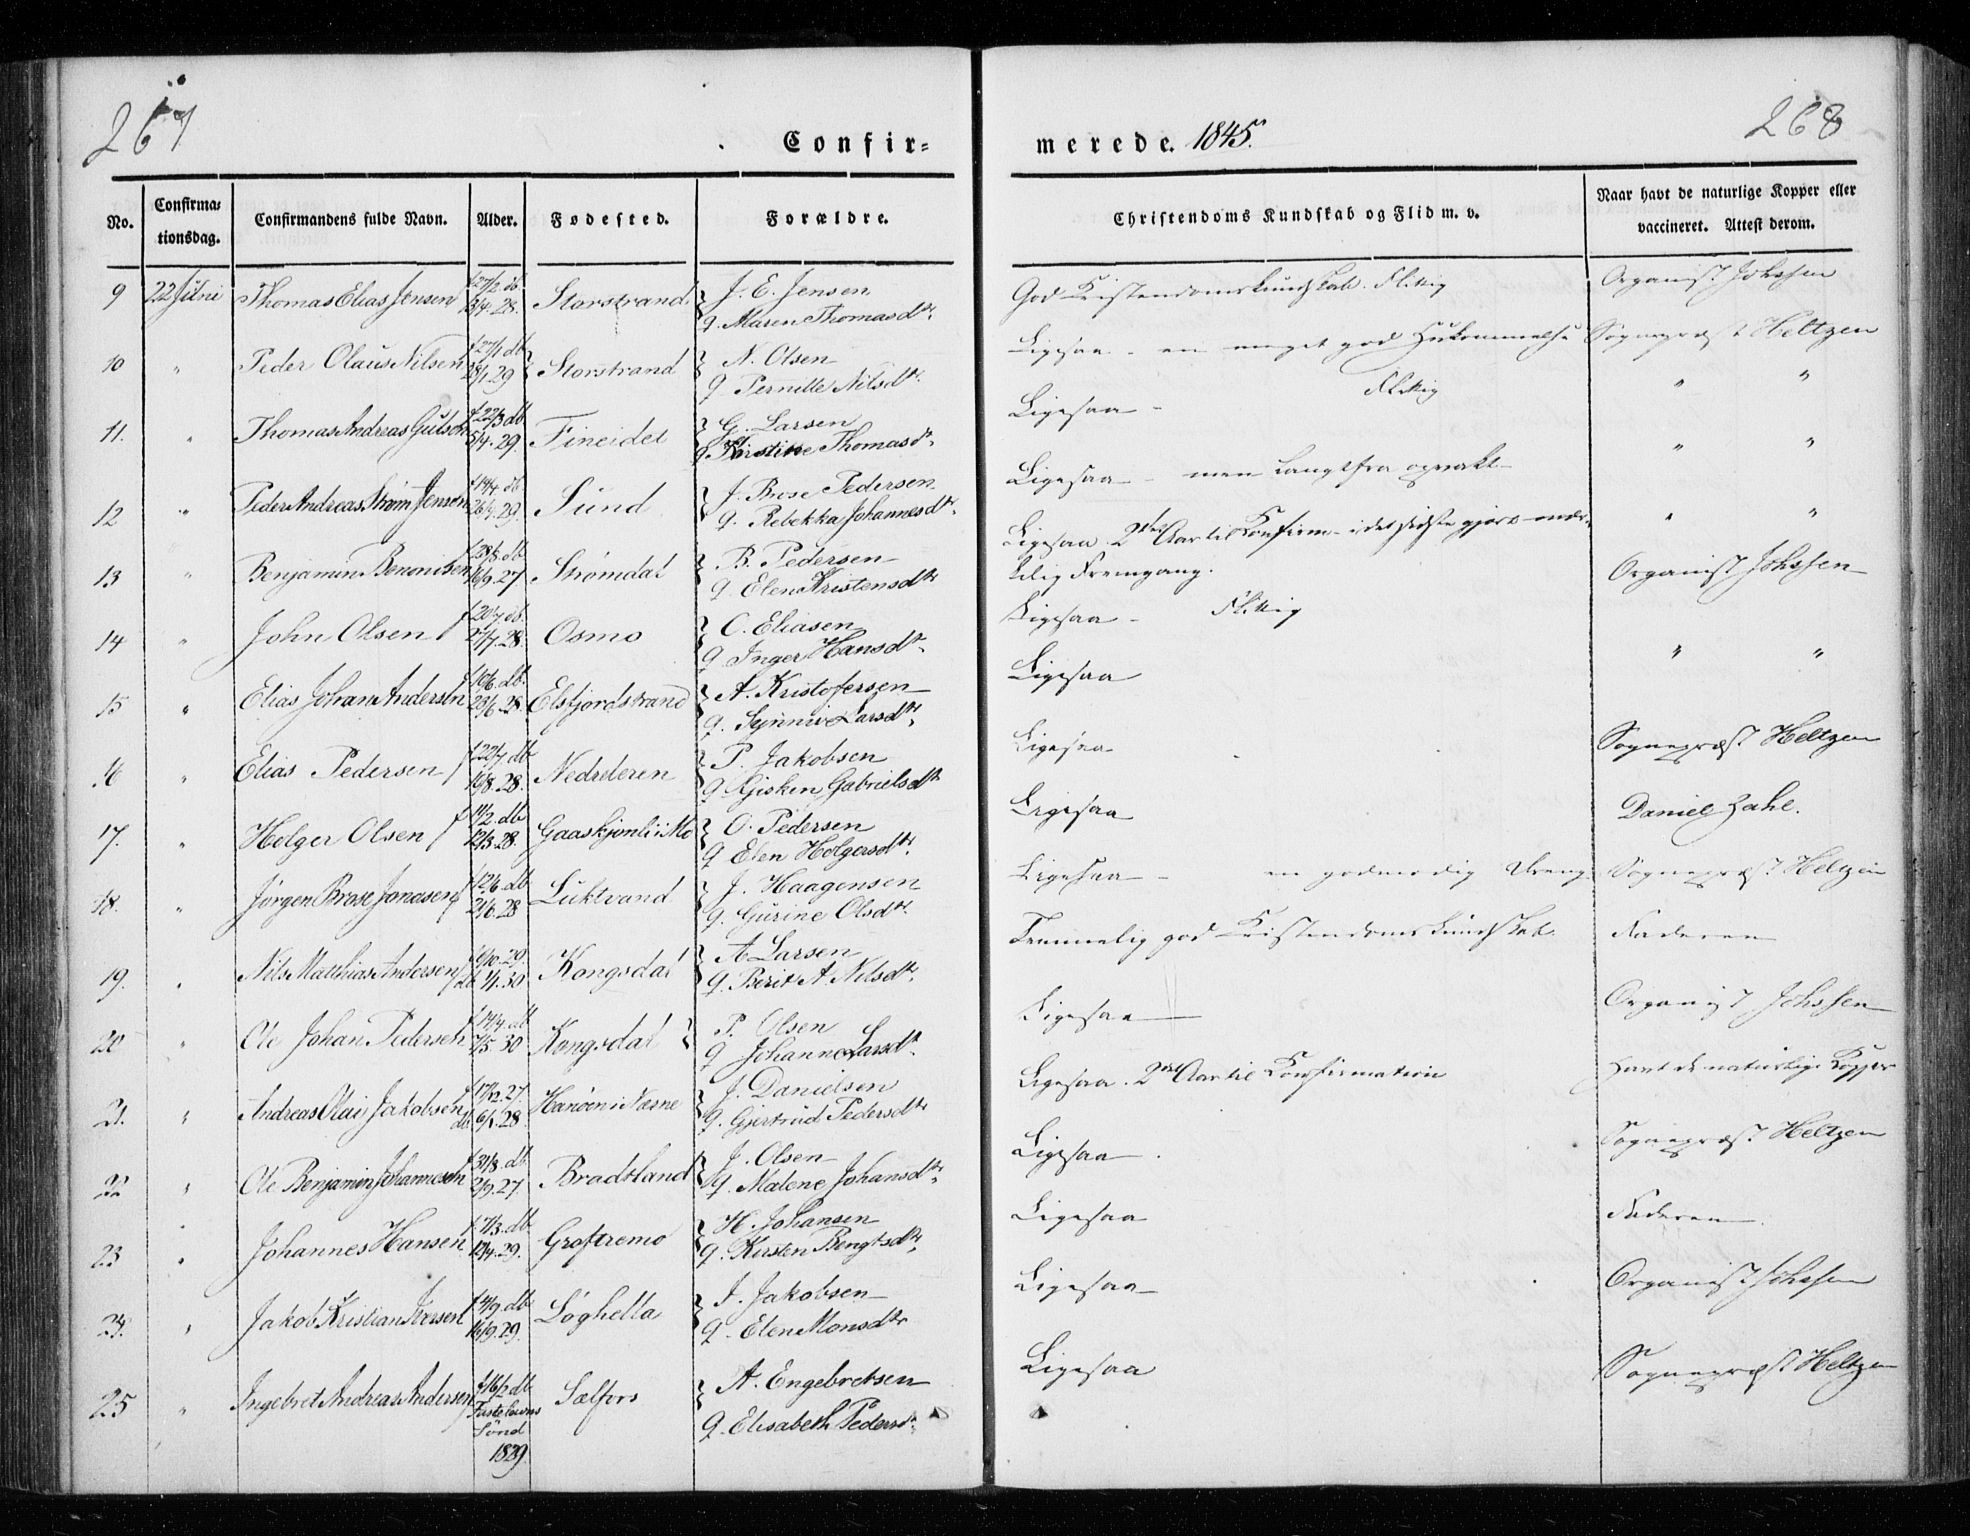 267
268
Confir-
merede. 1845.
No.
Confirma-
tionsdag.
Confirmandens fulde Navn.
Alder.
Fødested.
Forældre.
Christendoms Kundskab og Flid m. v.
Naar havt de naturlige Kopper eller
vaccineret. Attest derom.
9 22 Juni Thomas Elias Jensen f 27/2 db 13/4. 28. Storstrand J. E. Jensen
q. Maren Thomasdtr.
God Kristendomskundskab. Flittig Organist Johssen
10 " Peder Olaus Nilsen f 27/1 db 29 Storstrand N. Olsen
q Pernille Nilsdtr.
Ligesaa - en meget god Hukommelse Sogneprest Heltzen
11. " Thomas Andreas Gutsen f 22/3 db 5/4. 29. Fineidet G. Larsen
q Kirstine Thomasdr.
Ligesaa - Flittig " "
12 " Peder Andreas Strøm Jensen f 14/4. db. 26/4. 29. Sund J. Brose Pedersen
q. Rebekka Johannesdtr.
Ligesaa - men langtfra oprakt " "
13 " Benjamin Benonisen f 28/8. db. 16/9. 27. Strømdal B. Pedersen
q. Elen Kristensdtr
Ligesaa. 2det Aar til Konfirm - i det sidste gjort mær-
kelig Fremgang. " "
Organist Johssen
14 " John Olsen f 20/7. db. 27/7. 28. Osmo O. Eliasen
q Inger Hansdtr.
Ligesaa - Flittig
15 " Elias Johan Andersen f 10/6. db. 23/6. 28. Elsfjordstrand A. Kristofersen
q. Synnive Larsdtr.
Ligesaa " "
16 " Elias Pedersen f 22/7. db 10/8. 28. Nedrleren P. Jakobsen
q Gjisken Gabrielsdtr
Ligesaa Sogneprest Heltzen
17. " Holger Olsen f 14/2. db 12/3. 28. Gaaskjønli i Mo O. Pedersen
q Elen Holgersdtr.
Ligesaa Daniel Zahl.
18. " Jørgen Brose Jonasen f 12/6. db 21/6. 28 Luktvand J. Haagensen
q. Gurine Olsdtr.
Ligesaa - en godmodig Dreng Sogneprest Heltzen
19. " Nils Mathias Andersen f 6/10. 29. db 1/1. 30 Kongsdal A Larsen
q. Berit A. Nilsdtr.
Temmelig god Kristendomskundskab. Faderen
20 " Ole Johan Pedersen f 14/4. db 7/5. 30 Kongsdal P. Olsen
q Johanne Larsdtr.
Ligesaa Organist Johssen
21. " Andreas Olai Jakobsen f 17/12. 27. db. 6/1. 28. Hanøen i Næsne J. Danielsen
q. Gjertrud Pedersdtr
Ligesaa. 2det Aar til Konfirmation Havt de naturlige Kopper
22 " Ole Benjamin Johannesen f 31/8. db 2/9. 27. Bradtland J. Olsen
q. Malene Johansdtr.
Ligesaa. Sogneprest Heltzen
23 " Johannes Hansen f 7/3. db 12/4. 29. Groftremo H. Johansen
q. Kirsten Bengtsdtr.
Ligesaa Faderen
24. " Jakob Kristian Iversen f 4/9. db 16/9. 29. Løghella I. Jakobsen
q. Elen Monsdtr
Ligesaa Organist Johssen
25 " Ingebret Andreas Andersen f 16/2 db Fastelavns
Sønd
1829 Sælfors A. Engebretsen
q. Elisabeth Pedersdtr.
Ligesaa Sogneprest Heltzen